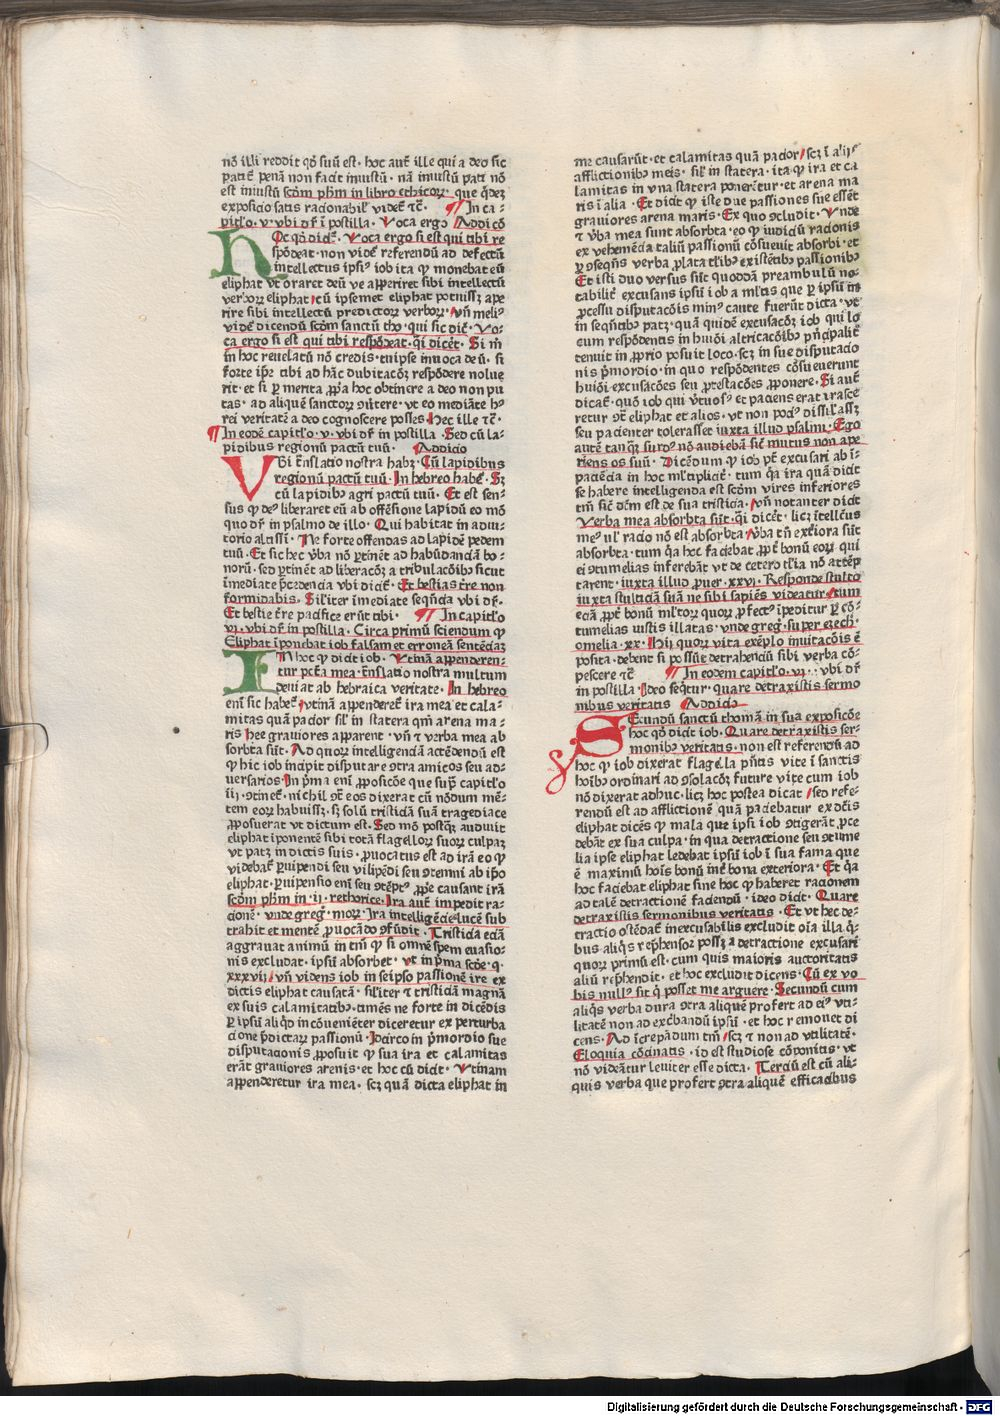 nō illi reddit qd̕ suū est. hoc aut̄ ille qui a deo sic
patit᷑ penā non facit iniustū. nā iniustū pati nō
est iniustū scd̄m ph̄m in libro ethicoꝝ. que q̇dez
exposicio satis racionabil᷑ videt᷑ ⁊c̄. ¶ In ca-
pitl̕o. v. vbi dr̄ ī postilla. Voca ergo Addicō
HOc qd̕ dicit᷑. Voca ergo si est qui tibi re
spōdeat. non videt᷑ referendū ad defectū
intellectus ipsi᷒ iob ita ꝙ monebat eū
eliphat vt oraret deū ve apperiret sibi intellectū
verboꝝ eliphat. cū ipsemet eliphat potuissꝫ ape
rire sibi intellectū predictoꝝ verboꝝ. vn̄ meli᷒
videt᷑ dicendū scd̄m sanctū tho. qui sic dic̄. Vo-
ca ergo si est qui tibi respōdeat. q̇i dicēt. Si m̄
in hoc reuelatū nō credis. tuipse inuoca deū. si
forte ip̄e tibi ad hāc dubitacōꝫ respōdere nolue
rit. et si ꝑ merita ꝓpͥa hoc obtinere a deo non pu
tas. ad aliquē sanctoꝝ ɔuertere. vt eo mediāte h᷒
rei veritatē a deo cognoscere posses. Hec ille ⁊c̄.
¶ In eodē capitl̕o. v. vbi dr̄ in postilla. Sed cū la-
pidibus regionū pactū tuū. Addicio
VBi trāslatio nostra habꝫ. Cū lapidibus
regionū pactū tuū. In hebreo habet᷑. Sꝫ
cū lapidibꝫ agri pactū tuū. Et est sen-
sus ꝙ de᷒ liberaret eū ab offensione lapidū eo mō
quo dr̄ in psalmo de illo. Qui habitat in adiu-
torio altissī. Ne forte offendas ad lapidē pedem
tuū. Et sic hec vba nō ꝑtinet ad habūdanciā bo-
norū. sed ꝑtinēt ad liberacōꝫ a tribulacōibꝫ sicut
īmediate p̄cedencia vbi dicit᷑. Et bestias terre non
formidabis. Silīter īmediate seqn̄cia vbi dr̄.
Et bestie t̄re pacifice erūt tibi. ¶ In capitl̕o
vi. vbi dr̄ in postilla. Circa primū sciendum ꝙ
Eliphat īponebat iob falsam et erroneā sentēciaꝫ
IN hoc ꝙ dicit iob. Vtinā appenderen-
tur pctā mea. trāslatio nostra multum
deuiat ab hebraica veritate. In hebreo
eni᷑ sic habet᷑. vtinā appenderet᷑ ira mea et cala-
mitas quā pacior sil᷑ in statera qm̄ arena ma-
ris hec grauiores apparent. vn̄ ⁊ verba mea ab
sorbta sūt. Ad quoꝝ intelligenciā accēdendū est
ꝙ hic iob incipit disputare ɔtra amicos seu ad-
uersarios. In pͥma eni᷑ ꝓposicōe que supra capitl̕o
iij. ɔtinet᷑. nichil ɔtͣ eos dixerat cū nōdum mē-
tem eoꝝ habuissꝫ. sꝫ solū tristiciā suā tragediace
ꝓposuerat vt dictum est. Sed mō postqꝫ audiuit
eliphat īponentē sibi totā flagelloꝝ suoꝝ culpaꝫ
vt patꝫ in dictis suis. ꝓuocatus est ad irā eo ꝙ
videbat᷑ ꝑuipendi seu vilipēdi seu ɔtemni ab ip̄o
eliphat. ꝑuipensio eni᷑ seu ɔtept᷒ ꝓpͥe causant irā
scd̄m ph̄m in. ij. rethorice. Ira aut̄ impedit ra-
cionē. vnde greg᷒. mor. Ira intelligēcie lucē sub
trahit et mentē ꝓuocādo ɔfūdit. Tristicia eciā
aggrauat animū in tm̄ ꝙ si omnē spem euasio-
nis excludat. ipsū absorbet. vt in pͥma scd̄e. q.
xxxvij. vn̄ videns iob in seipso passionē ire ex
dictis eliphat causatā. silīter ⁊ tristiciā magnā
ex suis calamitatibꝫ. timēs ne forte in dicēdis
ꝑ ipsū aliqd̕ incōueniēter diceretur ex perturba
cione p̄dictaꝝ passionū. Idcirco in pͥmordio sue
disputacionis ꝓposuit ꝙ sua ira et calamitas
erāt grauiores arenis. et hoc cū dicit. Vtinam
appenderetur ira mea. scꝫ quā dicta eliphat in
me causarūt. et calamitas quā pacior. scꝫ ī alijs
afflictionibꝫ meis. sil᷑ in statera. ita ꝙ ira et ca
lamitas in vna statera ponerētur. et arena ma
ris ī alia. Et dicit ꝙ iste due passiones sue essēt
grauiores arena maris. Ex quo ɔcludit. Vnde
⁊ vba mea sunt absorbta. eo ꝙ iudiciū racionis
ex vehemēcia taliū passionū cōsueuit absorbi. et
ꝑ ɔseqn̄s verba ꝓlata tl̕ibꝫ existētibꝫ passionibꝫ
Et isti duo versus sūt quoddā preambulū no-
tabilit᷑ excusans ipsū iob a ml̕tis que ꝑ ipsū in
ꝓcessu disputacōis min᷒ caute fuerūt dicta. vt
in seqn̄tibꝫ patꝫ. quā quidē excusacōꝫ iob qui lo
cum respōdentis in huiꝰi altricacōibꝫ pͥncipalit᷑
tenuit in ꝓprio posuit loco. scꝫ in sue disputacio
nis pͥmordio. in quo respōdentes cōsueuerunt
huiꝰi excusacōes seu ꝓtestacōes ꝓponere. Si aut̄
dicat᷑. quō iob qui vͥtuos᷒ et paciens erat irasce
retur ɔtͣ eliphat et alios. vt non poci᷒ dissil᷑assꝫ
seu pacienter tolerasset iuxta illud psalmi. Ego
autē tanqꝫ surd᷒ nō audiebā sic̄ mutus non ape
riens os suū. Dicēdum ꝙ iob pōt excusari ab ī-
paciēcia in hoc ml̕tiplicit᷑. tum qͥa ira quā dicit
se habere intelligenda est scd̄m vires inferiores
tm̄ sic̄ dc̄m est de sua tristicia. vn̄ notanter dicit
Verba mea absorbta sūt. q̇i dicēt. licꝫ ītellc̄us
me᷒ ul̕ racio nō est absorbta. vba tn̄ ext̄iora sūt
absorbta. tum qͥa hoc faciebat ꝓpt᷑ bonū eoꝝ qui
ei ɔtumelias inferebāt vt de cetero tl̕ia nō attēp
tarent. iuxta illud ꝓuer. xxvi. Responde stulto
iuxta stulticiā suā ne sibi sapiēs videatur. tum
eciā ꝓpt᷑ bonū ml̕toꝝ quoꝝ ꝓfect᷒ īpeditur ꝑ cō-
tumelias iustis illatas. vnde greg᷒. super ezech.
omelia. xx. Hij quoꝝ vita exēplo imitacōis ē
posita. debent si possūt detrahenciū sibi verba cō-
pescere ⁊c̄ ¶ In eodem capitl̕o. vi. vbi dr̄
in postilla. Ideo seqtur. Quare detraxistis sermo
nibus veritatis Addicio
SEcundū sanctū thomā in sua exposicōe
hoc qd̕ dicit iob. Quare detraxistis ser-
monibꝫ veritatis. non est referendū ad
hoc ꝙ iob dixerat flagella pn̄tis vite ī sanctis
hoībꝫ ordinari ad ɔsolacōꝫ future vite cum iob
nō dixerat adhuc. licꝫ hoc postea dicat. sed refe-
rendū est ad afflictionē quā paciebatur ex dc̄is
eliphat dicēs ꝙ mala que ipsi iob ɔtigerāt ꝓce
debāt ex sua culpa. in qua detractione seu ɔtume
lia ipse eliphat ledebat ipsū iob ī sua fama que
ē maximū hoīs bonū int᷑ bona exteriora. Et qͥa
hoc faciebat eliphat sine hoc ꝙ haberet racionem
ad talē detractionē faciendū. ideo dicit. Quare
detraxistis sermonibus veritatis. Et vt hec de-
tractio ostēdat᷑ inexcusabilis excludit oīa illa qͥ-
bus aliqͥs rep̄hensor possꝫ a detractione excusari
quoꝝ primū est. cum quis maioris auctoritatis
aliū rep̄hendit. et hoc excludit dicens. Cū ex vo
bis null᷒ sit qͥ posset me arguere. Secundū cum
aliqͥs verba dura ɔtra aliquē profert ad ei᷒ vti-
litatē non ad exc̄bandū ipsū. et hoc remouet di
cens. Ad īcrepādum tm̄. scꝫ ⁊ non ad vtilitatē.
Eloquia cōcinatis. id est studiose cōponitis. vt
nō videātur leuiter esse dicta. Terciū est cū ali-
quis verba que profert ɔtra aliquē efficacibus
Digitalisierung gefördert durch die Deutsche Forschungsgemeinschaft - DFG